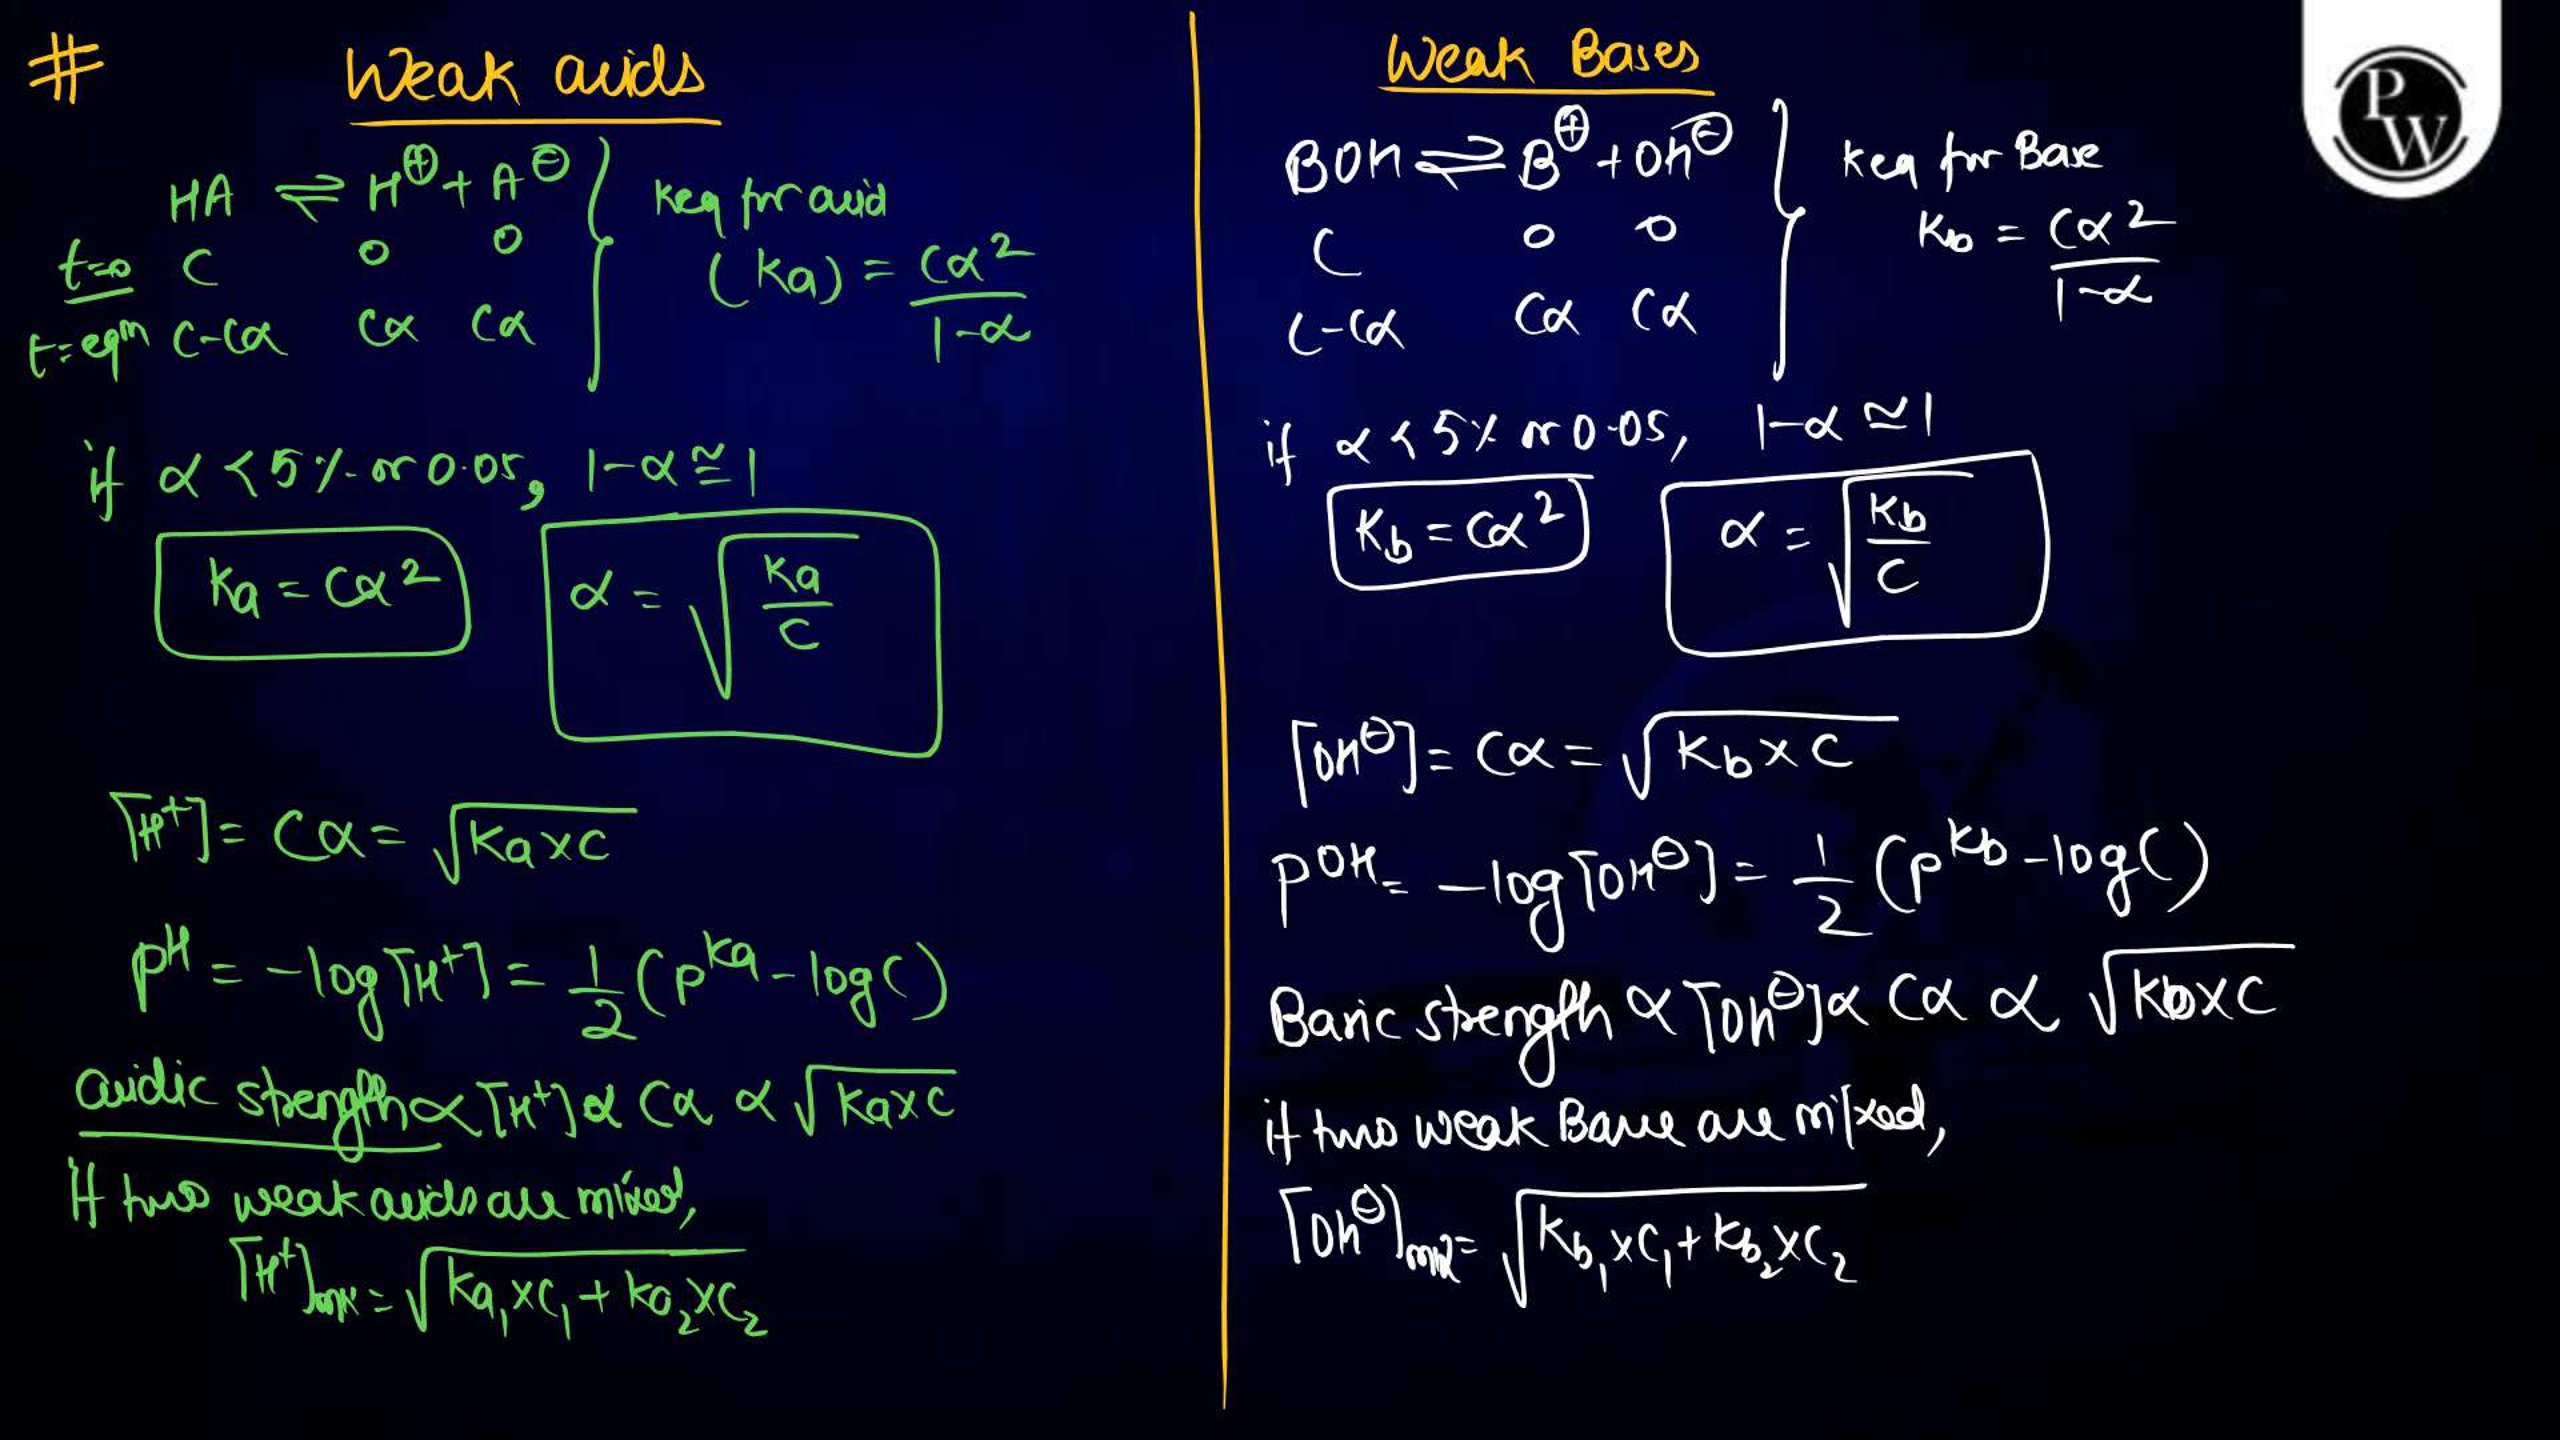 # Weak acids
HA ⇌ H⊕ + A⊖ } keq for acid
t=0 C 0 0 (ka) = Cα²/1-α
t=eqm C-Cα Cα Cα
if α < 5% or 0.05, 1-α ≅ 1
Ka = Cα² α = √(Ka/C)
[H⁺] = Cα = √Ka×C
pH = -log[H⁺] = 1/2 (pKa - logC)
acidic strength ∝ [H⁺] ∝ Cα ∝ √Ka×C
If two weak acids are mixed,
[H⁺]mix = √Ka₁×C₁ + Ka₂×C₂
Weak Bases
BOH ⇌ B⊕ + OH⊖ } keq for Base
C 0 0 Kb = Cα²/1-α
C-Cα Cα Cα
if α < 5% or 0.05, 1-α ≃ 1
Kb = Cα² α = √(Kb/C)
[OH⊖] = Cα = √Kb×C
pOH = -log[OH⊖] = 1/2 (pKb - logC)
Basic strength ∝ [OH⊖] ∝ Cα ∝ √Kb×C
if two weak Base are mixed,
[OH⊖]mix = √Kb₁×C₁ + Kb₂×C₂
PW